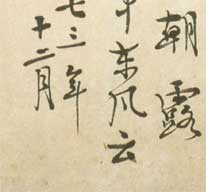 朝露
东风云
七三年
十二月